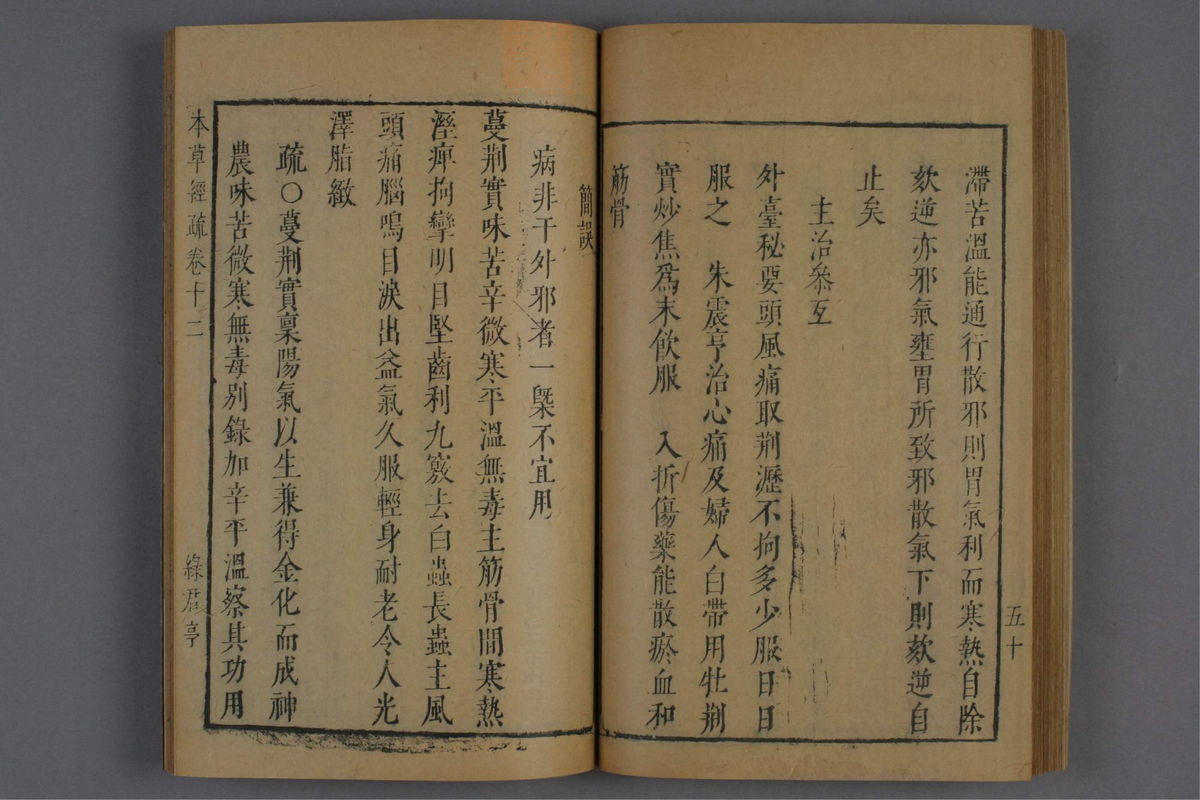 滯苦溫能通行散邪則胃氣利而寒熱自除
欬逆亦邪氣壅胃所致邪散氣下則欬逆自
止矣
主治叅互
外臺秘要頭風痛取荆瀝不拘多少服日日
服之　朱震亨治心痛及婦人白帶用牡荆
實炒焦爲末飲服　入折傷藥能散瘀血和
筋骨
五十
簡誤
病非干外邪者一槩不宜用
蔓荆實味苦辛微寒平溫無毒主筋骨間寒熱
溼痺拘攣明目堅齒利九竅去白蟲長蟲主風
頭痛腦鳴目淚出益氣久服輕身耐老令人光
澤脂緻
疏〇蔓荆實稟陽氣以生兼得金化而成神
農味苦微寒無毒别錄加辛平溫察其功用
本草經疏卷十二
綠君亭